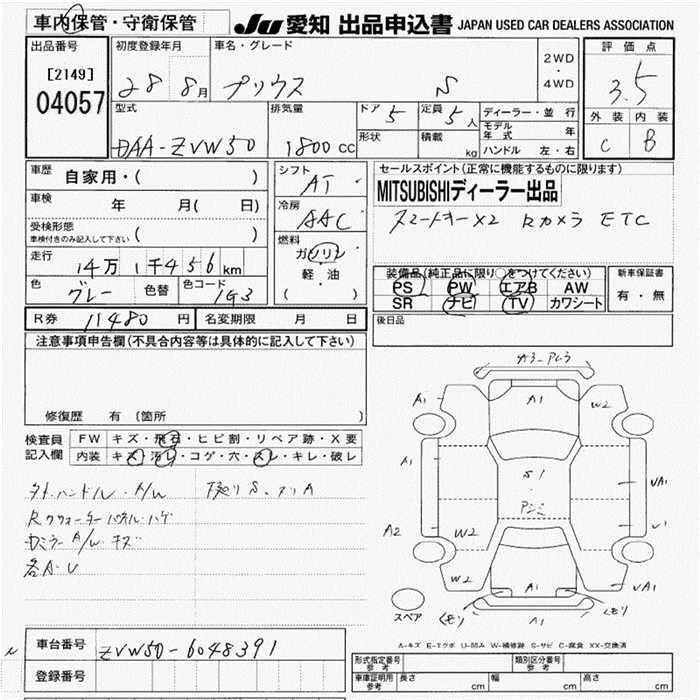 車内保管・守衛保管
JU 愛知 出品申込書 JAPAN USED CAR DEALERS ASSOCIATION
出品番号 初度登録年月 車名・グレード 評価点
[2149] 28 8月 プリウス S 2WD・4WD 3.5
04057
型式 排気量 ドア 5 定員 5人 ディーラー・並行 外装 内装
DAA-ZVW50 1800cc 形状 積載 kg モデル年式 年 C B
ハンドル 左・右
車歴 自家用・( ) シフト AT セールスポイント(正常に機能するものに限ります)
車検 年 月( 日) 冷房 AAC MITSUBISHIディーラー出品
受検形態 ( ) スマートキーX2 Rカメラ ETC
車検付きのみ記入して下さい
走行 14万1千456km 燃料 ガソリン・軽・油 ( )
色 グレー 色替 色コード 1G3
装備品(純正品に限り○をつけてください) 新車保証書
PS PW エアB AW 有・無
SR ナビ TV カワシート
R券 11480円 名変期限 月 日 後日品
注意事項申告欄(不具合内容等は具体的に記入して下さい)
修復歴 有 (箇所 )
検査員記入欄 FW キズ・飛石・ヒビ割・リペア跡・X要
内装 キズ・汚レ・コゲ・穴・スレ・キレ・破レ
ハンドル・A/W
Rクウォーターパネル・ハゲ
ミラーA/W・キズ
各A・U
A1 A1 W2
A1 S1
A2 W2
W2 A1
A1
スペア
A-キズ E-エクボ U-凹み W-補修跡 S-サビ C-腐食 XX-交換済
車台番号 ZVW50-6048391
登録番号
形式指定番号 参考 類別区分番号 参考
車庫証明用 参考 長さ cm 幅 cm 高さ cm